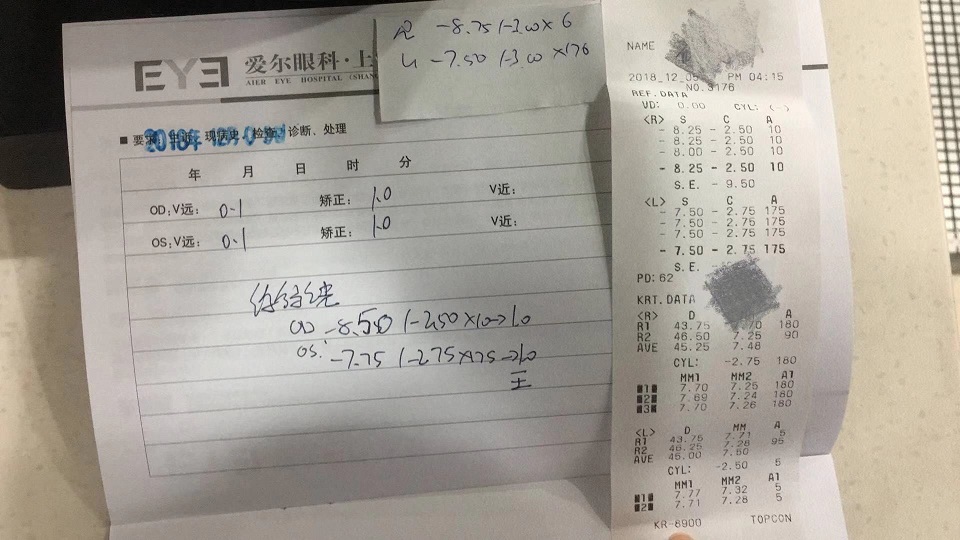 EYE 爱尔眼科·上
AIER EYE HOSPITAL (SHANG
R -8.75 /-3.00 × 6
L -7.50 /-3.00 ×176
■ 要求：主诉、现病史、检查、诊断、处理
2018年12月05日
年 月 日 时 分
OD:V远: 0.1 矫正: 1.0 V近:
OS:V远: 0.1 矫正: 1.0 V近:
OD -8.50 /-2.50×10→1.0
OS: -7.75 /-2.75×175→1.0
NAME
2018_12_05 PM 04:15
NO.3176
REF.DATA
VD: 0.00 CYL: (-)
<R> S C A
- 8.25 - 2.50 10
- 8.25 - 2.50 10
- 8.00 - 2.50 10
- 8.25 - 2.50 10
S.E. - 9.50
<L> S C A
- 7.50 - 2.75 175
- 7.50 - 2.75 175
- 7.50 - 2.75 175
- 7.50 - 2.75 175
S.E.
PD: 62
KRT.DATA
<R> D A
R1 43.75 7.70 180
R2 46.50 7.25 90
AVE 45.25 7.48
CYL: -2.75 180
MM1 MM2 A1
1 7.70 7.25 180
2 7.69 7.24 180
3 7.70 7.26 180
<L> D MM A
R1 43.75 7.71 5
R2 46.25 7.28 95
AVE 45.00 7.50
CYL: -2.50 5
MM1 MM2 A1
1 7.77 7.32 5
2 7.71 7.28 5
KR-8900 TOPCON